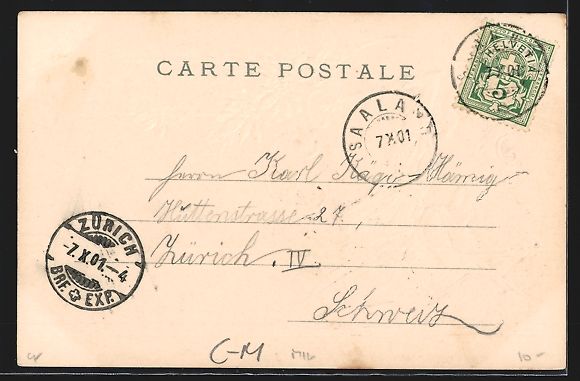 CARTE POSTALE
HELVETIA
5
SAALAND
7 X 01
Herrn Karl Kägi-Hämig
Huttenstrasse 27,
Zürich IV
Schweiz
ZÜRICH
-7.X.01.-4
BRF. EXP.
C-M
10-